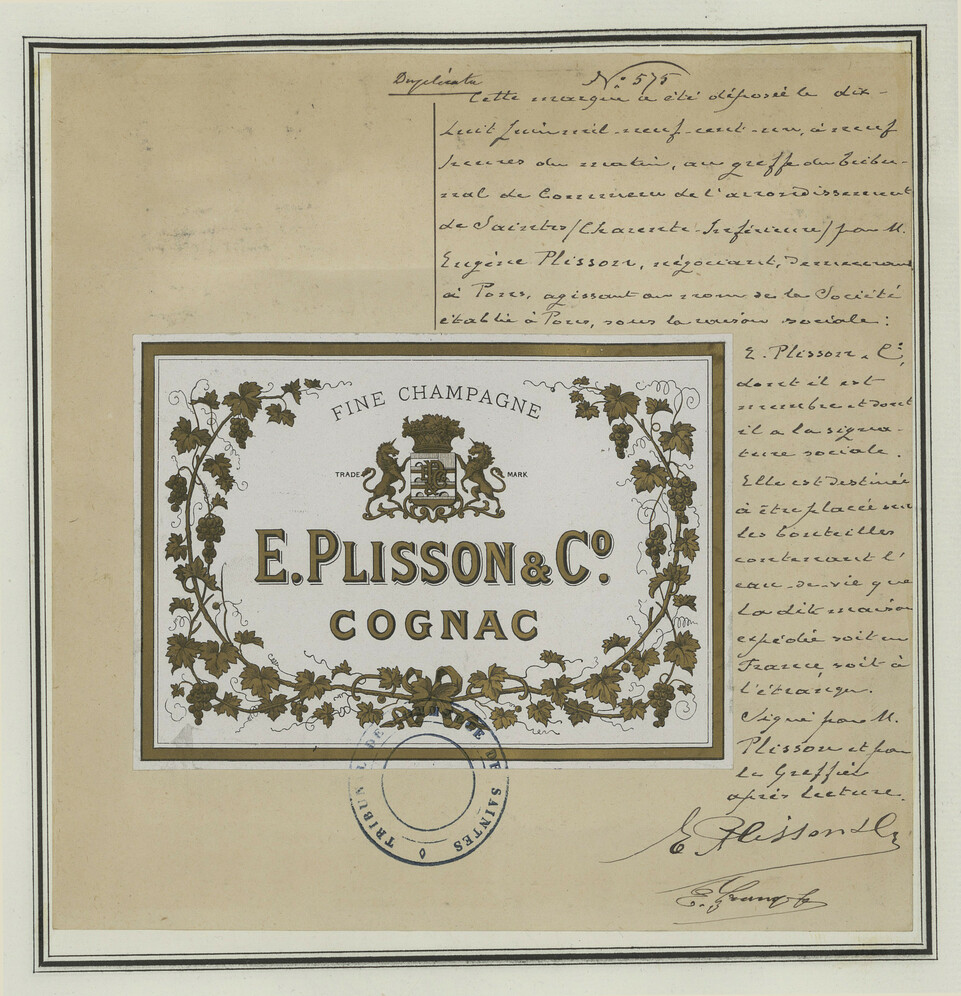 Duplicata
N° 575
Cette marque a été déposée le dix-
huit Juin mil-neuf-cent-un, à neuf
heures du matin, au greffe du Tribu-
nal de Commerce de l'arrondissement
de Saintes (Charente-Inférieure) par M.
Eugène Plisson, négociant, demeurant
à Pons, agissant au nom de la Société
établie à Pons, sous la raison sociale:
E. Plisson & Cie,
dont il est
membre et dont
il a la signa-
ture sociale.
Elle est destinée
à être placée sur
les bouteilles
contenant l'
eau-de-vie que
la dite maison
expédie soit en
France soit à
l'étranger.
Signé par M.
Plisson et par
le Greffier
après lecture.
E Plisson & Cie
FINE CHAMPAGNE
TRADE MARK
E. PLISSON & Co.
COGNAC
TRIBUNAL DE COMMERCE DE SAINTES